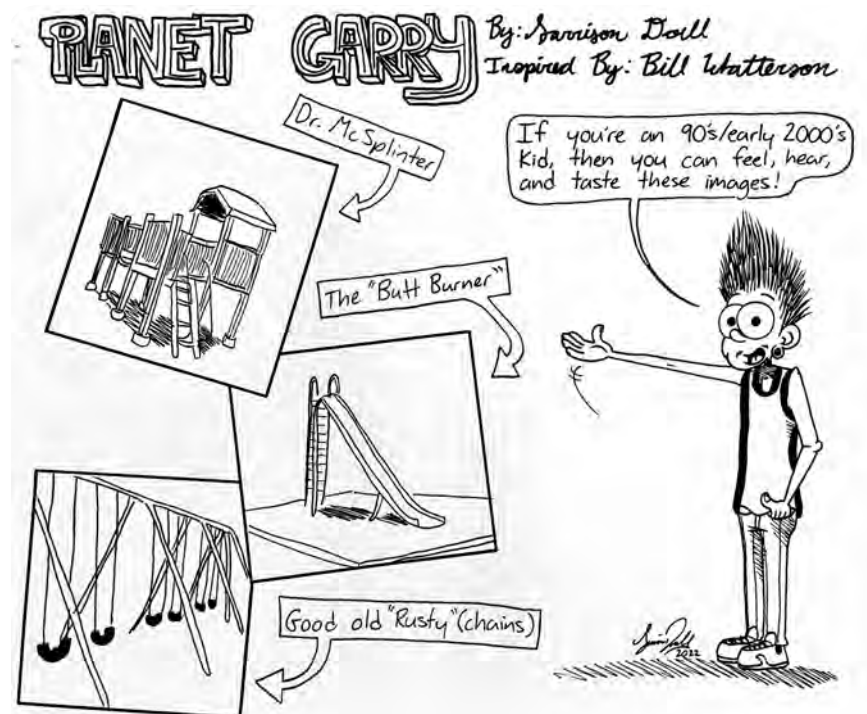 PLANET GARRY
By: Garrison Doell
Inspired By: Bill Watterson
Dr. McSplinter
If you're an 90's/early 2000's
Kid, then you can feel, hear,
and taste these images!
The "Butt Burner"
Good old "Rusty" (chains)
2022